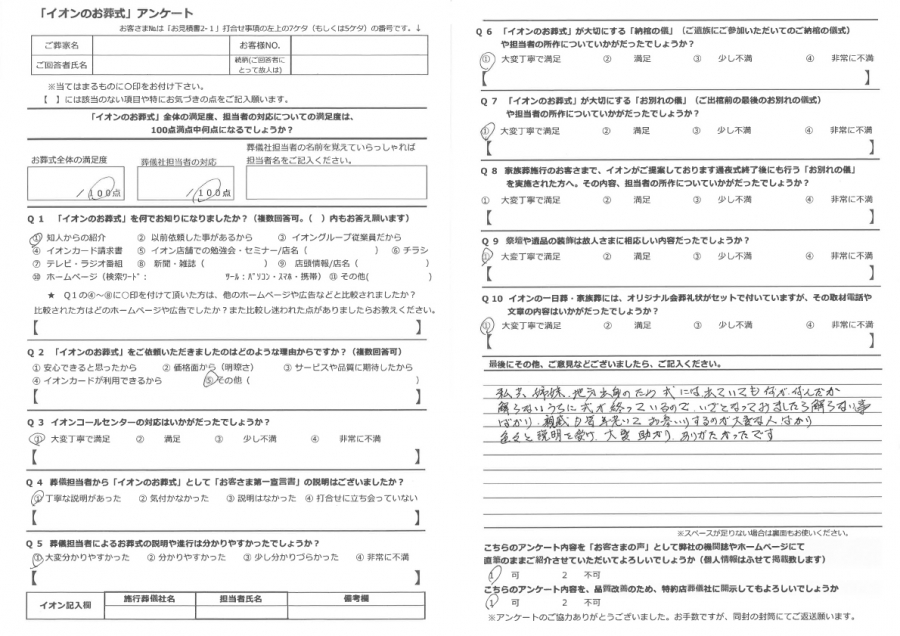 「イオンのお葬式」アンケート
お客さま№は「お見積書2-1」打合せ事項の左上の7ケタ（もしくは5ケタ）の番号です。↓
ご葬家名 お客様NO.
ご回答者氏名 続柄(ご回答者にとって故人は)
※当てはまるものに〇印をお付け下さい。
【 】には該当のない項目や特にお気づきの点をご記入願います。
「イオンのお葬式」全体の満足度、担当者の対応についての満足度は、
100点満点中何点になるでしょうか？
お葬式全体の満足度 葬儀社担当者の対応 葬儀社担当者の名前を覚えていらっしゃれば
担当者名をご記入ください。
/100点 /100点
Q 1 「イオンのお葬式」を何でお知りになりましたか？（複数回答可。（ ）内もお答え願います）
① 知人からの紹介 ② 以前依頼した事があるから ③ イオングループ従業員だから
④ イオンカード請求書 ⑤ イオン店舗での勉強会・セミナー/店名（ ） ⑥ チラシ
⑦ テレビ・ラジオ番組 ⑧ 新聞・雑誌（ ） ⑨ 店頭情報/店名（ ）
⑩ ホームページ（検索ﾜｰﾄﾞ： ﾂｰﾙ：ﾊﾟｿｺﾝ・ｽﾏﾎ・携帯） ⑪ その他( )
★ Q1の④～⑧に〇印を付けて頂いた方は、他のホームページや広告などと比較されましたか？
比較された方はどのホームページや広告でしたか？また比較し迷われた点がありましたらお教えください。
【 】
Q 2 「イオンのお葬式」をご依頼いただきましたのはどのような理由からですか？（複数回答可）
① 安心できると思ったから ② 価格面から（明瞭さ） ③ サービスや品質に期待したから
④ イオンカードが利用できるから ⑤ その他（ ）
【 】
Q 3 イオンコールセンターの対応はいかがだったでしょうか？
① 大変丁寧で満足 ② 満足 ③ 少し不満 ④ 非常に不満
【 】
Q 4 葬儀担当者から「イオンのお葬式」として「お客さま第一宣言書」の説明はございましたか？
① 丁寧な説明があった ② 気付かなかった ③ 説明はなかった ④ 打合せに立ち会っていない
【 】
Q 5 葬儀担当者によるお葬式の説明や進行は分かりやすかったでしょうか？
① 大変分かりやすかった ② 分かりやすかった ③ 少し分かりづらかった ④ 非常に不満
【 】
イオン記入欄 施行葬儀社名 担当者氏名 備考欄
Q 6 「イオンのお葬式」が大切にする「納棺の儀」（ご遺族にご参加いただいてのご納棺の儀式）
や担当者の所作についていかがだったでしょうか？
① 大変丁寧で満足 ② 満足 ③ 少し不満 ④ 非常に不満
【 】
Q 7 「イオンのお葬式」が大切にする「お別れの儀」（ご出棺前の最後のお別れの儀式）
や担当者の所作についていかがだったでしょうか？
① 大変丁寧で満足 ② 満足 ③ 少し不満 ④ 非常に不満
【 】
Q 8 家族葬施行のお客さまで、イオンがご提案しております通夜式終了後にも行う「お別れの儀」
を実施された方へ。その内容、担当者の所作についていかがだったでしょうか？
① 大変丁寧で満足 ② 満足 ③ 少し不満 ④ 非常に不満
【 】
Q 9 祭壇や遺品の装飾は故人さまに相応しい内容だったでしょうか？
① 大変丁寧で満足 ② 満足 ③ 少し不満 ④ 非常に不満
【 】
Q 10 イオンの一日葬・家族葬には、オリジナル会葬礼状がセットで付いていますが、その取材電話や
文章の内容はいかがだったでしょうか？
① 大変丁寧で満足 ② 満足 ③ 少し不満 ④ 非常に不満
【 】
最後にその他、ご意見などございましたら、ご記入ください。
私共、姉妹、地元出身のため 式には出ていても なかなかなんだか
解らないうちに式が終っているので、いざとなっておりましたら解らない事
ばかり、親戚
色々と説明を受け、大変助かり、ありがたかったです
※スペースが足りない場合は裏面もお使いください。
こちらのアンケート内容を「お客さまの声」として弊社の機関誌やホームページにて
直筆のままご紹介させていただいてよろしいでしょうか（個人情報はふせて掲載致します）
1 可 2 不可
こちらのアンケート内容を、品質改善のため、特約店葬儀社に開示してもよろしいでしょうか
1 可 2 不可
※アンケートのご協力ありがとうございました。お手数ですが、同封の封筒にてご返送願います。